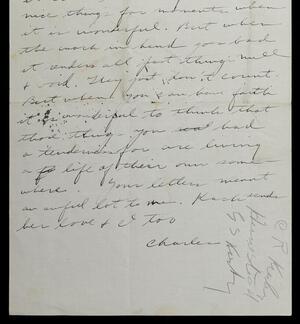 nice thing for moments when
it is wonderful. But when
the work in hand goes bad
it renders all past things null
& void. They just don't count.
But when you can have faith
it is wonderful to think that
those things you had
a tenderness for are living
a life of their own some-
where. Your letters meant
an awful lot to me. Kack sends
her love & I too
Charles